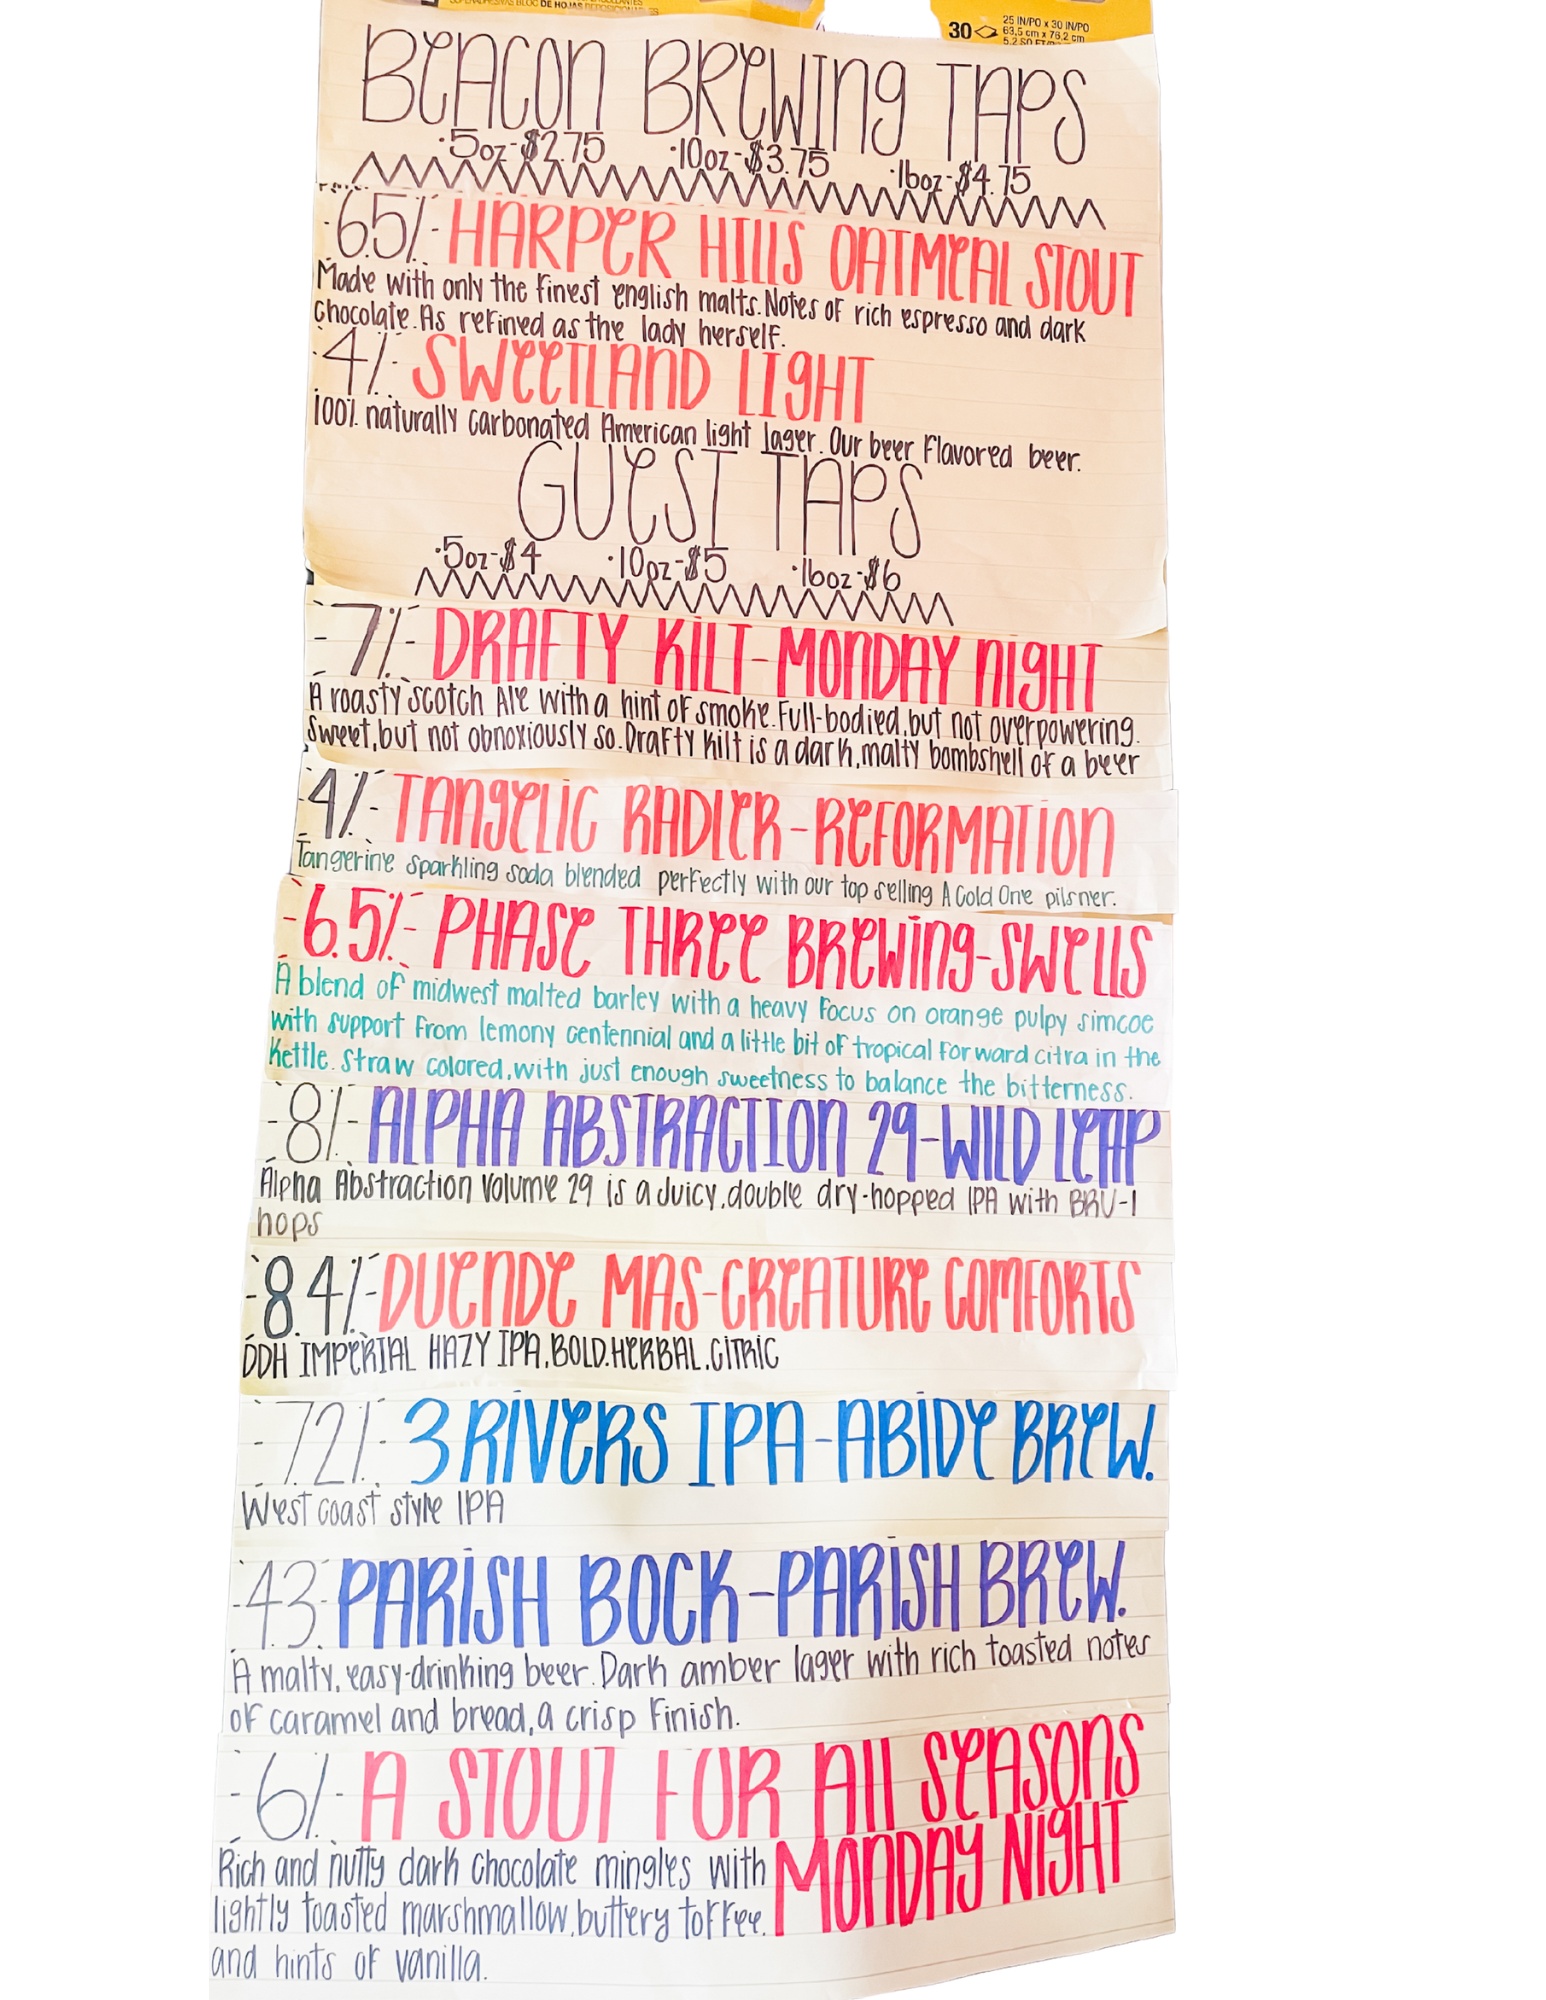 30 25 IN/PO x 30 IN/PO
63,5 cm x 76,2 cm
BEACON BREWING TAPS
·5oz-$2.75 ·10oz-$3.75 ·16oz-$4.75
-6.5%- HARPER HILLS OATMEAL STOUT
Made with only the finest english malts. Notes of rich espresso and dark
chocolate. As refined as the lady herself.
·4%- SWEETLAND LIGHT
100% naturally carbonated American light lager. Our beer flavored beer.
GUEST TAPS
·5oz-$4 ·10oz-$5 ·16oz-$6
-7%- DRAFTY KILT-MONDAY NIGHT
A roasty scotch Ale with a hint of smoke. Full-bodied, but not overpowering.
Sweet, but not obnoxiously so. Drafty Kilt is a dark, malty bombshell of a beer
-4%- TANGELIC RADLER-REFORMATION
Tangerine sparkling soda blended perfectly with our top selling A Cold One pilsner.
-6.5%- PHASE THREE BREWING-SWELLS
A blend of midwest malted barley with a heavy focus on orange pulpy simcoe
with support from lemony centennial and a little bit of tropical forward citra in the
kettle. Straw colored, with just enough sweetness to balance the bitterness.
-8%- ALPHA ABSTRACTION 29-WILD LEAP
Alpha Abstraction Volume 29 is a Juicy, double dry-hopped IPA with BRU-1
hops
-8.4%- DUENDE MAS-CREATURE COMFORTS
DDH IMPERIAL HAZY IPA. BOLD. HERBAL. CITRIC
-7.2%- 3 RIVERS IPA-ABIDE BREW.
West coast style IPA
-4.3- PARISH BOCK-PARISH BREW.
A malty, easy-drinking beer. Dark amber lager with rich toasted notes
of caramel and bread, a crisp finish.
-6%- A STOUT FOR ALL SEASONS
MONDAY NIGHT
Rich and nutty dark chocolate mingles with
lightly toasted marshmallow, buttery toffee,
and hints of vanilla.